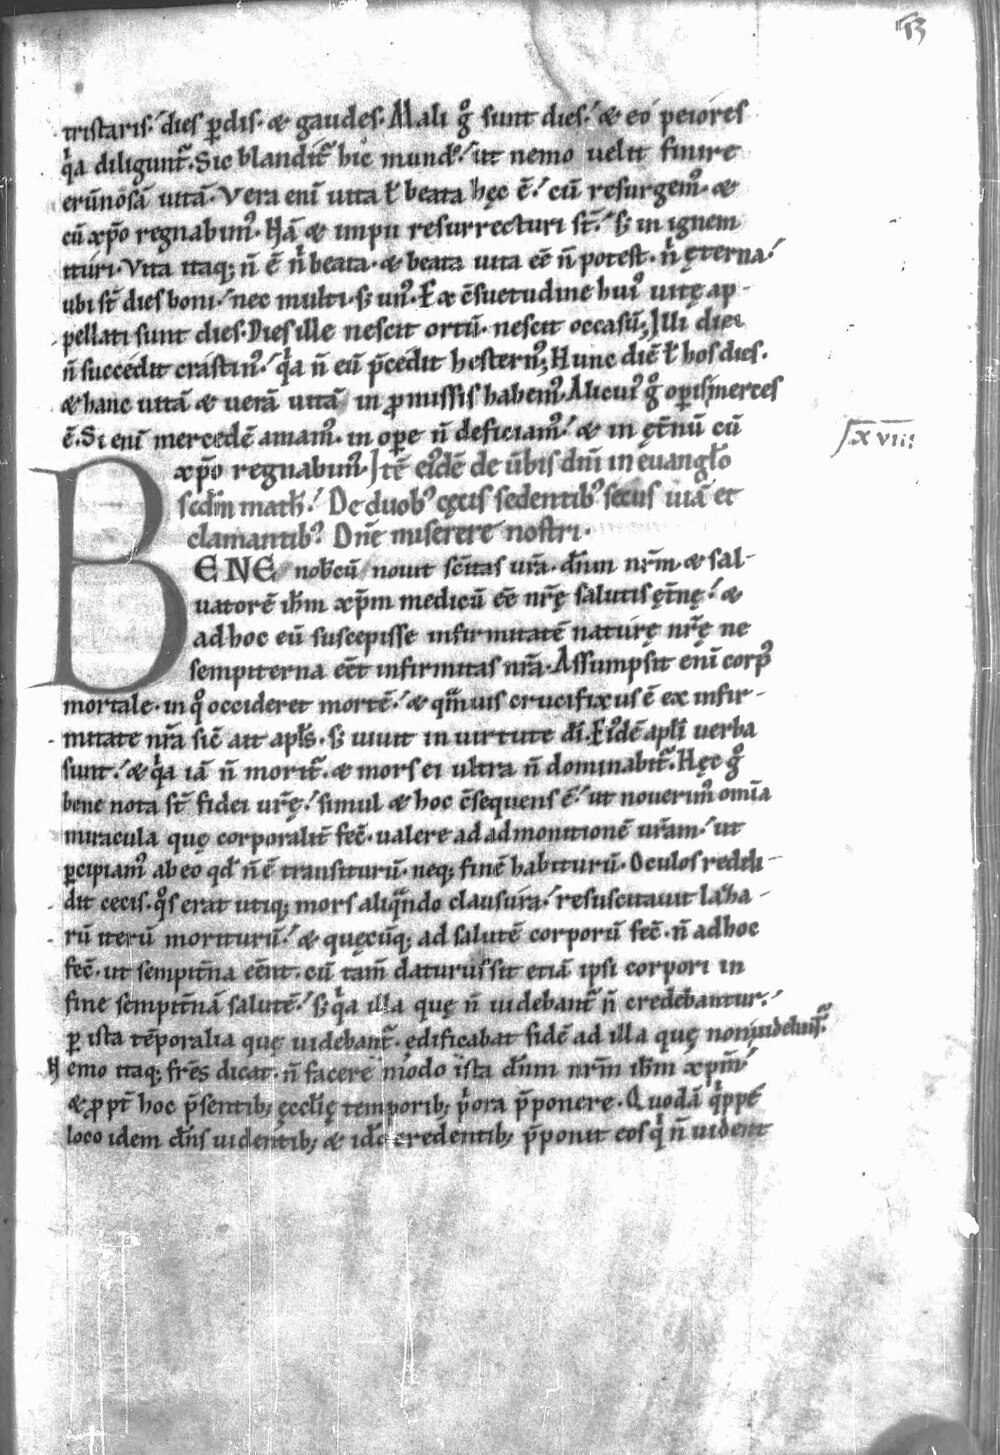 53
tristaris. dies ꝑdis. & gaudes. Mali gͦ sunt dies. & eo peiores
qͥa diligunt᷑. Sic blandit᷑ hic mundꝰ. ut nemo uelit finire
erūnosā uitā. Vera enī uita ł beata hęc ē. cū resurgemꝰ. &
cū xp̄o regnabimꝰ. Nā & impii resurrecturi st̄. sꝫ in ignem
ituri. Vita itaqꝫ n̄ ē nͥ beata. & beata uita eē n̄ potest. nͥ ęterna.
ubi st̄ dies boni. nec multi. sꝫ unꝰ. Ex c̄suetudine huiꝰ uitę ap-
pellati sunt dies. Dies ille nescit ortū. nescit occasū; Illi diei
n̄ succedit crastinꝰ. qͥa n̄ eū p̄cedit hesternꝰ; Hunc diē ł hos dies.
& hanc uitā & uerā uitā in ꝓmissis habemꝰ. Alicuiꝰ gͦ opis merces
ē. Si enī mercedē amamꝰ. in oꝑe n̄ deficiamꝰ. & in ęt̄nū cū
xp̄o regnabimꝰ. Itē eiͦdē de ūbis dn̄i in euangl̄o
scd̄m math̄. De duobꝰ cęcis sedentibꝰ secus uiā et
clamantibꝰ. Dn̄e miserere nostri.
xvii
BENE nob̄cū nouit sc̄itas ur̄a. dn̄m nr̄m & sal-
uatorē ih̄m xp̄m medicū eē nr̄ę salutis ęt̄nę. &
ad hoc eū suscepisse infirmitatē naturę nr̄ę ne
sempiterna eēt infirmitas nr̄a. Assumpsit enī corpꝰ
mortale. in qͦ occideret mortē. & qͣmuis crucifixus ē ex infir-
mitate nr̄a sic̄ ait apl̄s. sꝫ uiuit in uirtute dī. Eiͦdē apl̄i uerba
sunt. & qͥa iā n̄ morit᷑. & mors ei ultra n̄ dominabit᷑. Hęc gͦ
bene nota st̄ fidei ur̄ę. simul & hoc c̄sequens ē. ut nouerimꝰ om̄ia
miracula quę corporalit̄ fec̄. ualere ad admonitionē ur̄am. ut
ꝑcipiamꝰ ab eo qd̄ n̄ ē transiturū. neqꝫ finē habiturū. Oculos reddi-
dit cecis. qͦs erat utiqꝫ mors aliqͣndo clausura. resuscitauit laza-
rū iterū moriturū. & quęcūqꝫ ad salutē corporū fec̄. n̄ ad hoc
fec̄. ut sempit̄na eēnt. cū tam̄ daturus sit etiā ipsi corpori in
fine sempit̄nā salutē. sꝫ qͥa illa quę n̄ uidebant᷑ n̄ credebantur.
ꝑ ista tēporalia quę uidebant᷑. edificabat fidē ad illa quę non uidebant᷑.
Nemo itaqꝫ fr̄es dicat. n̄ facere modo ista dn̄m nr̄m ih̄m xp̄m
& ꝓpt̄ hoc p̄sentibꝫ ęccl̄ię temporibꝫ pͥora p̄ponere. Quodā qͥppe
loco idem dn̄s uidentibꝫ & idͦ credentibꝫ p̄ponit eos qͥ n̄ uident